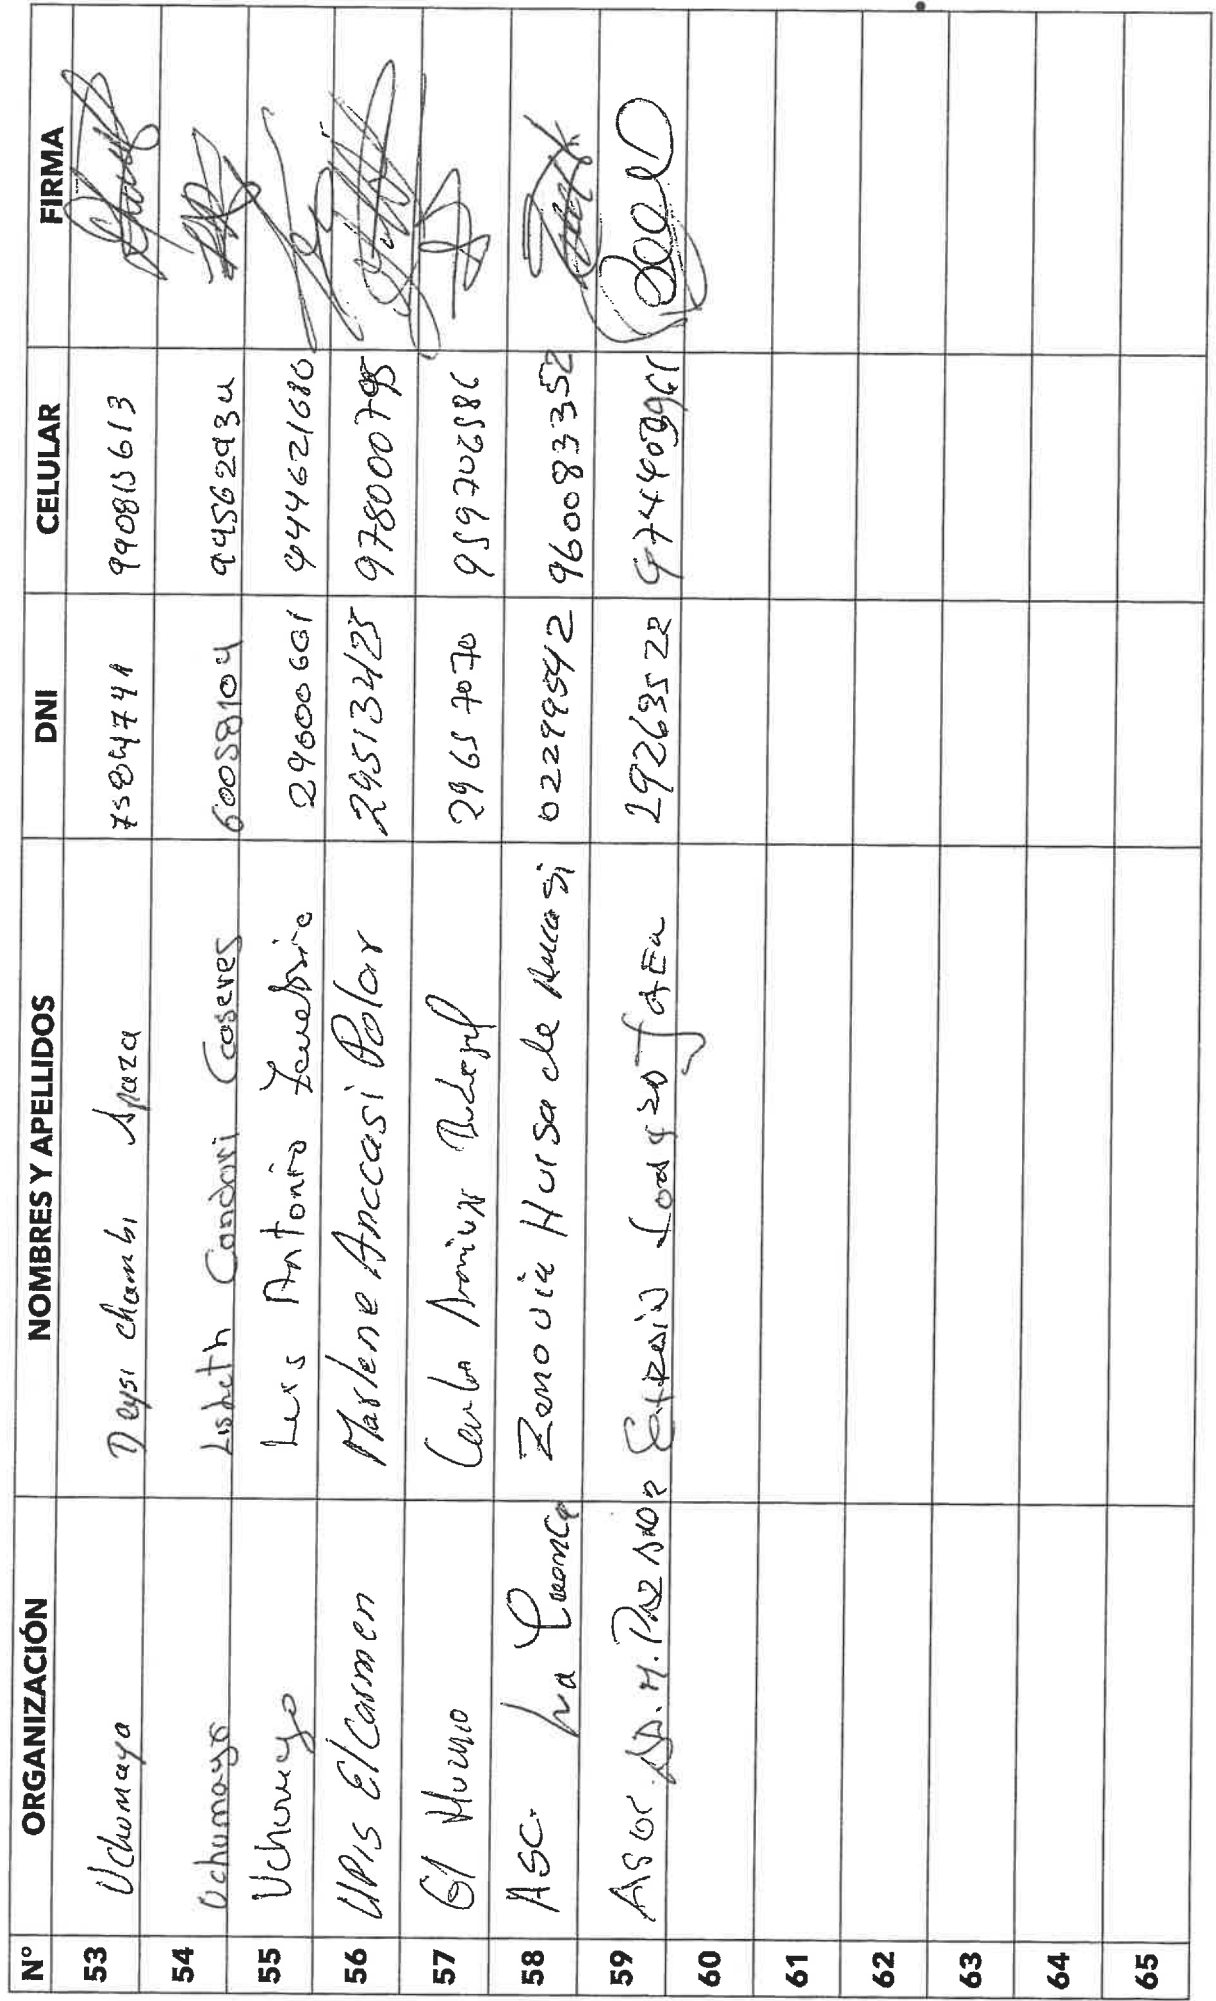 N° ORGANIZACIÓN NOMBRES Y APELLIDOS DNI CELULAR FIRMA
53 Uchumayo Deysi chambi Apaza 990815613
54 Uchumayo Lisbeth Condori Caseres 60058104 94562934
55 Uchumayo Luis Antonio 29600661 944621680
56 UPIS El Carmen Marlene Anccasi Polar 29513425 978000795
57 El Huayio Carlos 29657070 959706586
58 ASC. La Zenovia Huisa de Anccasi 02299542 960083352
59 Asoc 29263522
60
61
62
63
64
65